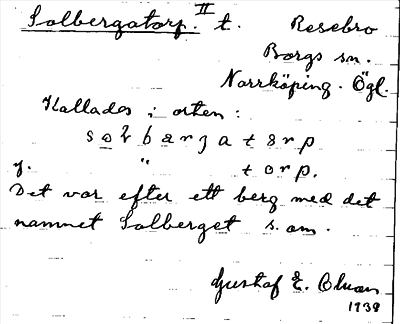 Solbergatorp. II t. Resebro
Borgs sn.
Norrköping. Ögl.
Kallades i orten:
sɷƚbærgatɷrp
y. " torp.
Det var efter ett berg med det
namnet Solberget s. om.
Gustaf E. Olsson
1939